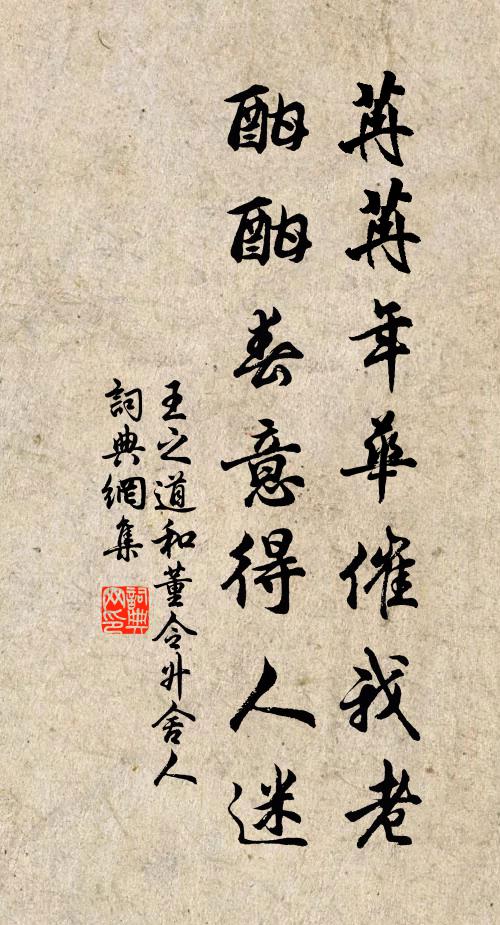 苒苒年華催我老
酣酣春意得人迷
王之道和董令升舍人
詞典網集
詞典
網印